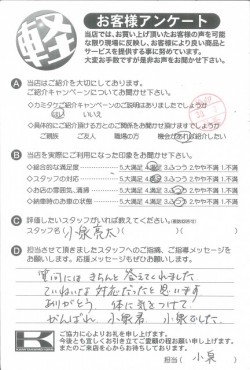 軽
お客様アンケート
当店では、お買い上げ頂いたお客様の声を可能
な限り現場に反映し、お客様により良い商品と
サービスを提供する事に努めています。
大変お手数ですが是非お声をお聞かせ下さい。
A 当店はご紹介を大切にしております。
ご紹介キャンペーンについてお聞かせ下さい。
◇カミタケご紹介キャンペーンのご説明はありましたでしょうか
はい いいえ
◇具体的にご紹介頂ける方との関係をお聞かせ頂けますでしょうか
ご親族 ご友人 職場の方 機会があれば紹介したい
B 当店を実際にご利用になった印象をお聞かせ下さい。
◇総合的な満足度 5.大満足 4.満足 3.ふつう 2.やや不満 1.不満
◇スタッフの対応 5.大満足 4.満足 3.ふつう 2.やや不満 1.不満
◇お店の雰囲気、清掃 5.大満足 4.満足 3.ふつう 2.やや不満 1.不満
◇納車時のお車の状態 5.大満足 4.満足 3.ふつう 2.やや不満 1.不満
C 評価したいスタッフがいれば教えてください。
スタッフ名( 小泉亮太 )
D 担当させて頂きましたスタッフへのご指摘、ご指導メッセージを
お願いします。応援メッセージもぜひお願いします。
質問にはきちんと答えてくれました。
ていねいな対応だったと思います
ありがとう 体に気をつけて
がんばれ 小泉君 小泉でした。
K
ご協力に心よりお礼を申し上げます。
今後とも宜しくお引き立てご愛顧の程お願い申し上げます。
またのご来店を心からお待ちしております。
担当( 小泉 )